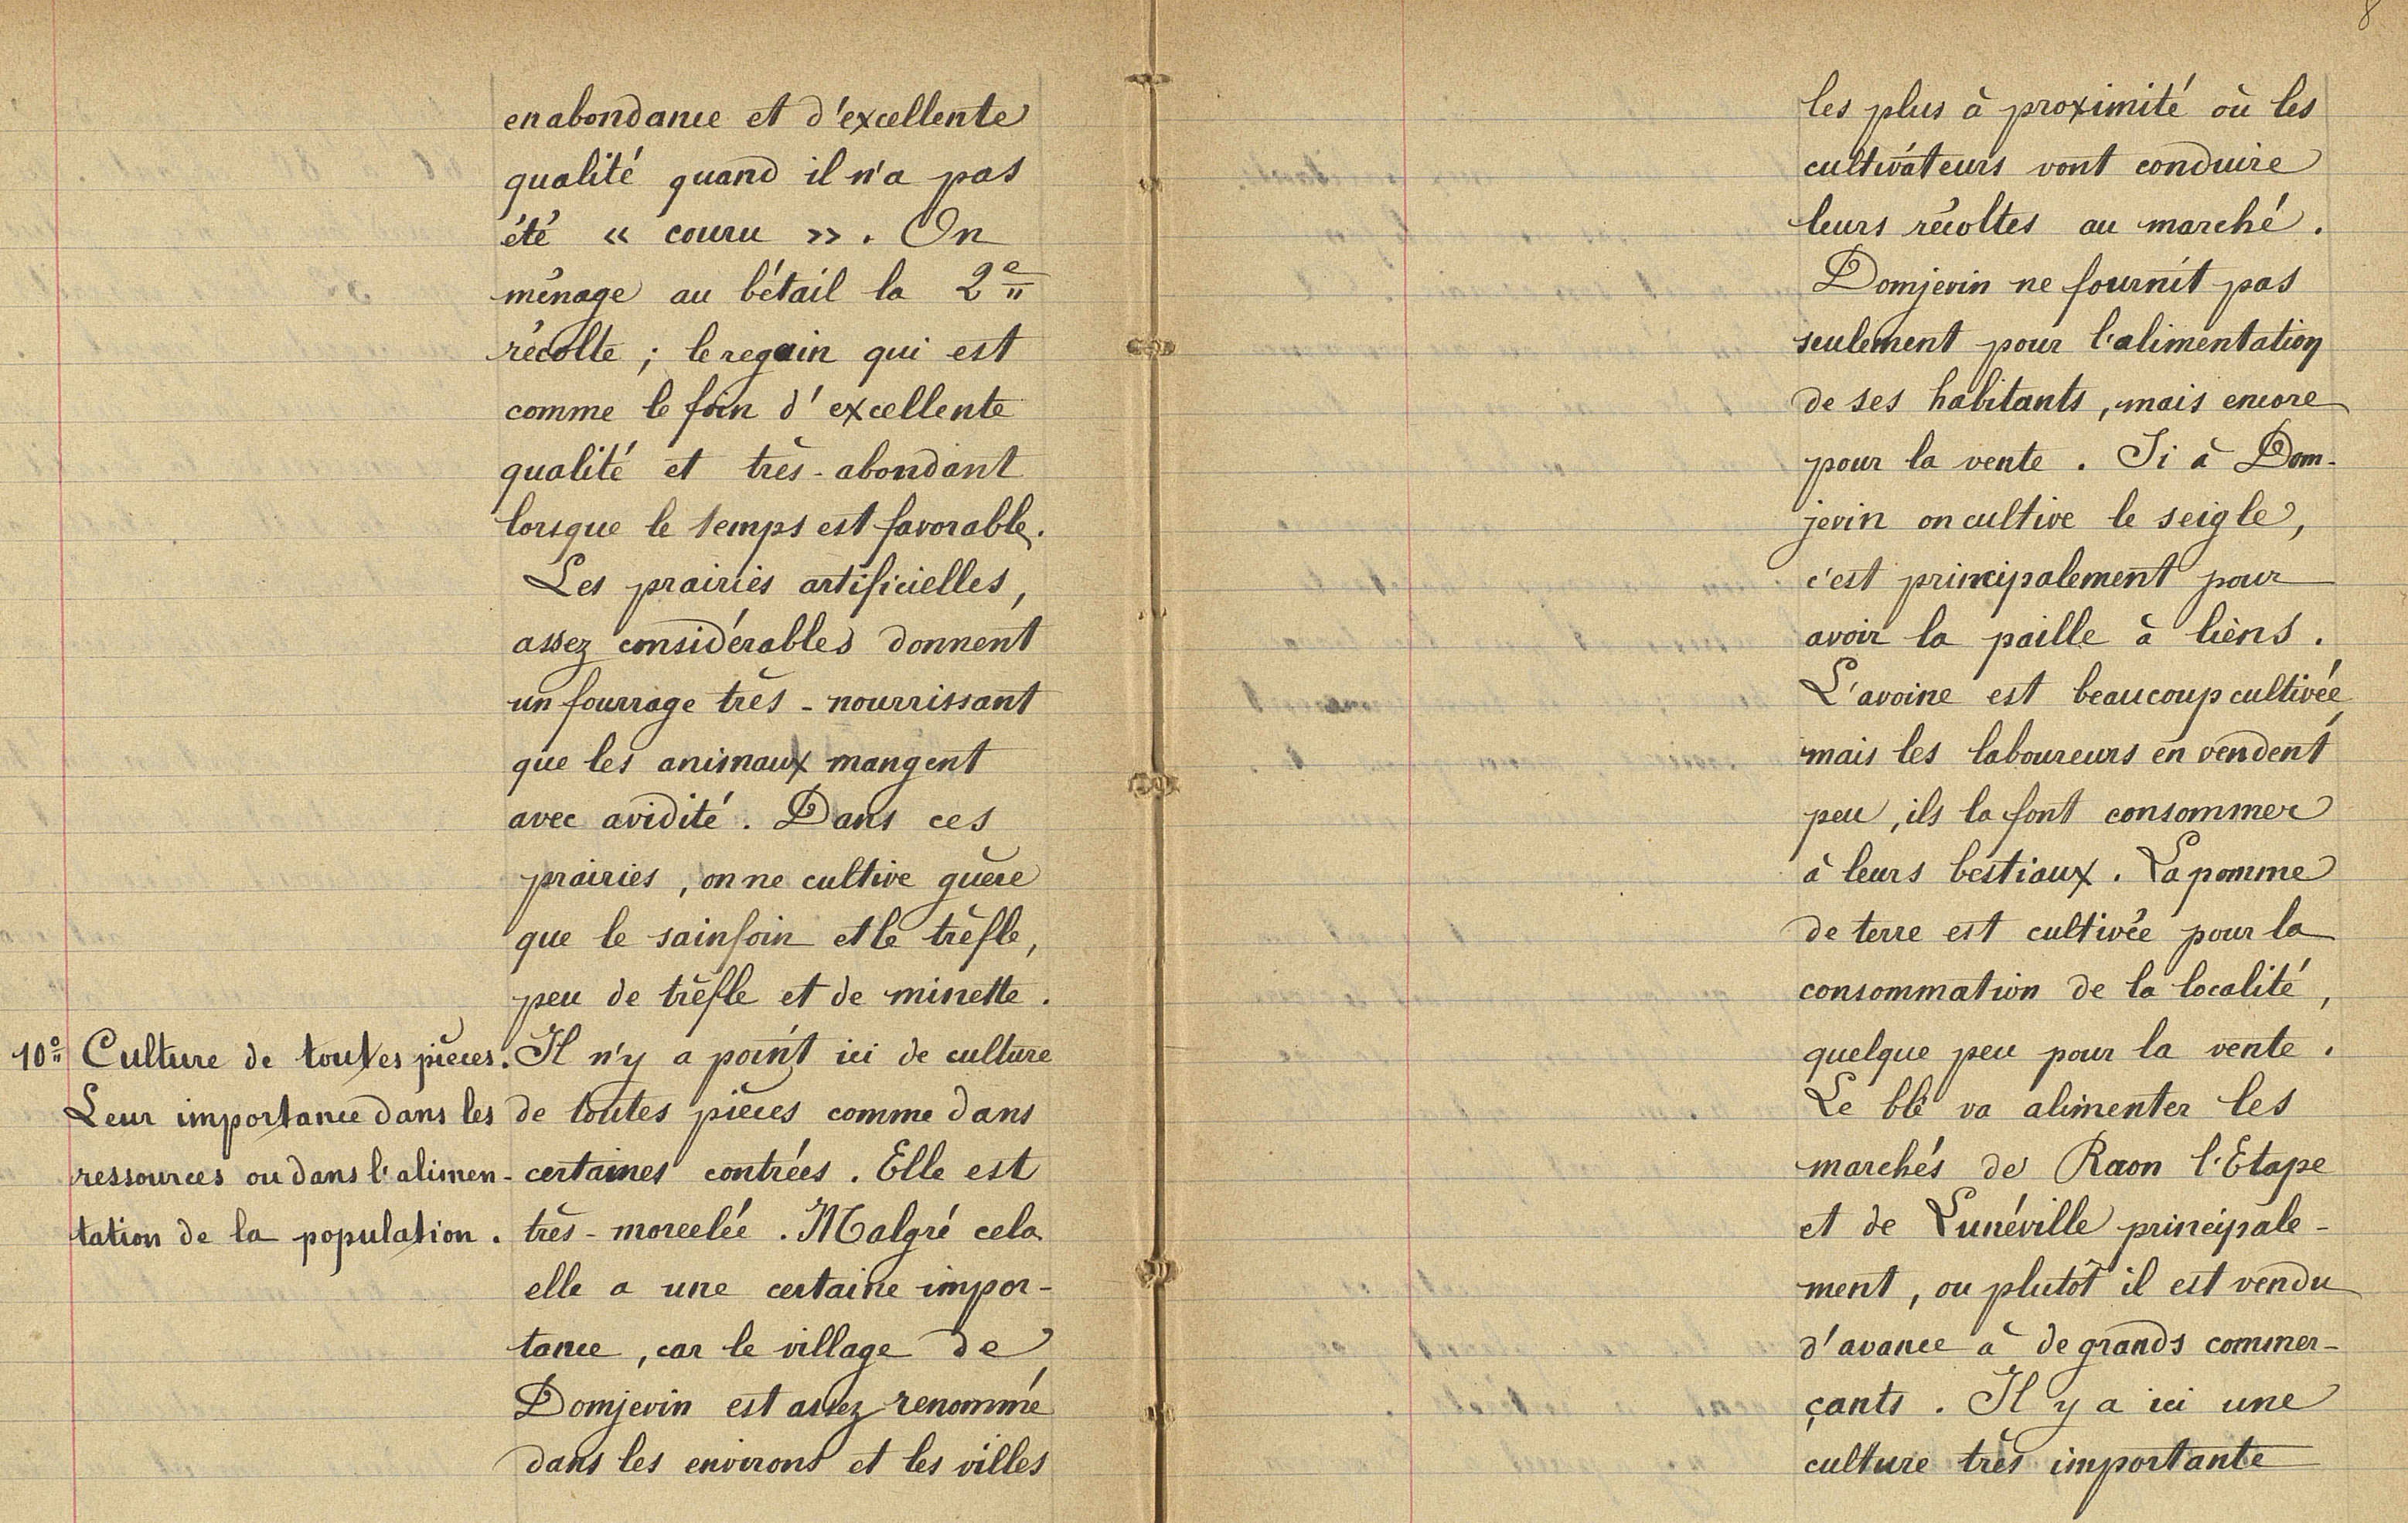 en abondance et d'excellente
qualité quand il n'a pas
été « couru ». On
ménage au bétail la 2e
récolte ; le regain qui est
comme le foin d'excellente
qualité et très-abondant
lorsque le temps est favorable.
Les prairies artificielles,
assez considérables donnent
un fourrage très-nourrissant
que les animaux mangent
avec avidité. Dans ces
prairies, on ne cultive guère
que le sainfoin et le trèfle,
peu de trèfle et de minette.
10° Culture de toutes pièces.
Leur importance dans les
ressources ou dans l'alimen-
tation de la population.
Il n'y a point ici de culture
de toutes pièces comme dans
certaines contrées. Elle est
très-morcelée. Malgré cela
elle a une certaine impor-
tance, car le village de
Domjevin est assez renommé
dans les environs et les villes
8
les plus à proximité où les
cultivateurs vont conduire
leurs récoltes au marché.
Domjevin ne fournit pas
seulement pour l'alimentation
de ses habitants, mais encore
pour la vente. Si à Dom-
jevin on cultive le seigle,
c'est principalement pour
avoir la paille à liens.
L'avoine est beaucoup cultivée,
mais les laboureurs en vendent
peu, ils la font consommer
à leurs bestiaux. La pomme
de terre est cultivée pour la
consommation de la localité,
quelque peu pour la vente.
Le blé va alimenter les
marchés de Raon l'Etape
et de Lunéville principale-
ment, ou plutôt il est vendu
d'avance à de grands commer-
çants. Il y a ici une
culture très importante